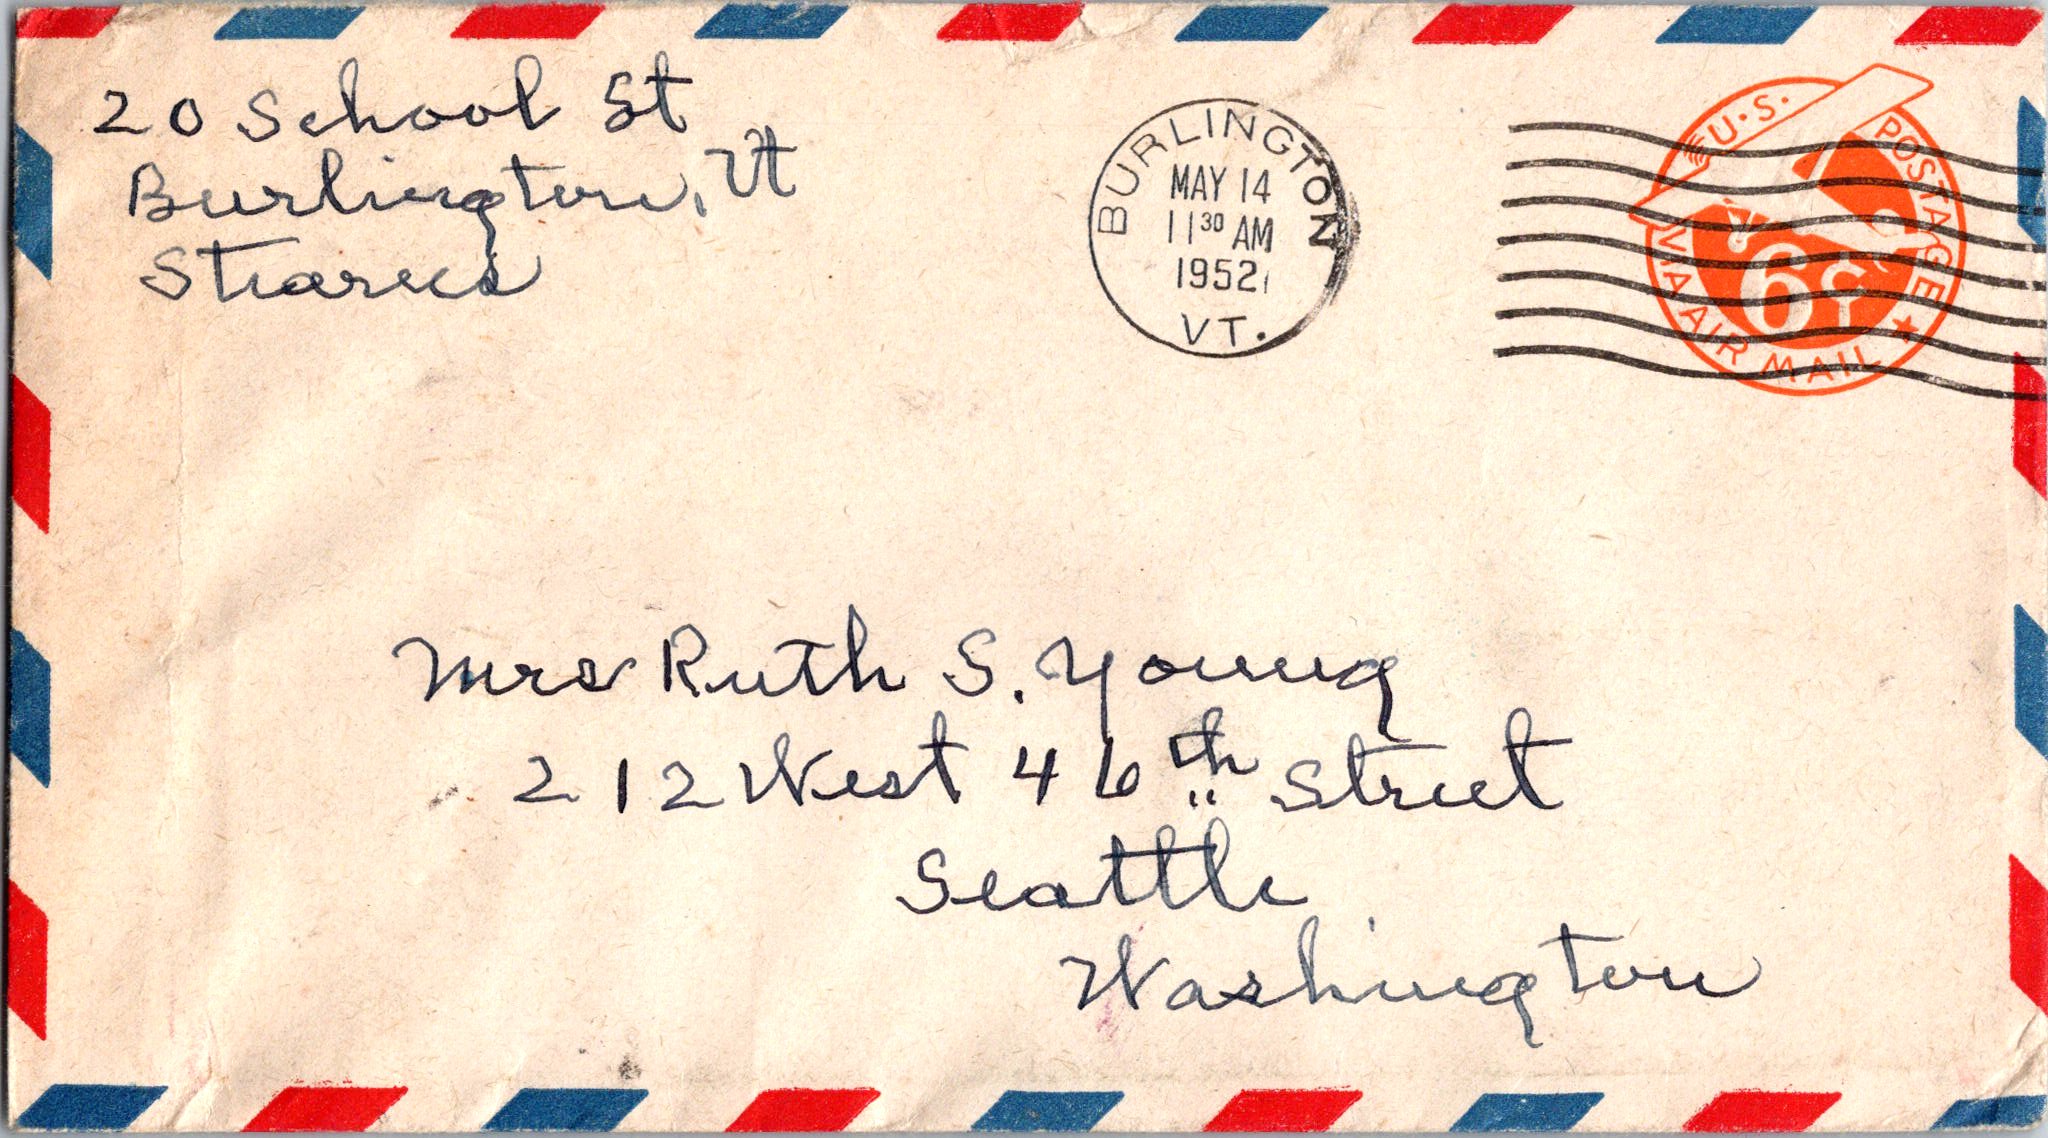 20 School St
Burlington, Vt
Stearns
BURLINGTON
MAY 14
11 30 AM
1952
VT.
U.S. POSTAGE
6¢
VIA AIR MAIL
Mrs Ruth S. Young
212 West 46th Street
Seattle
Washington